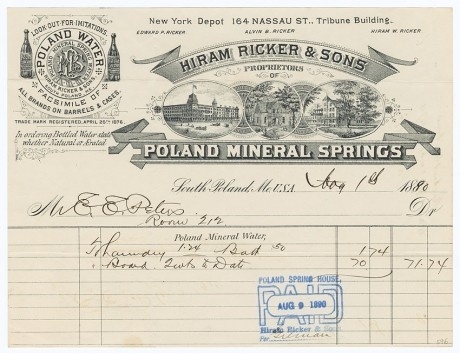 New York Depot 164 NASSAU ST., Tribune Building.
EDWARD P. RICKER ALVIN B. RICKER HIRAM W. RICKER
LOOK OUT FOR IMITATIONS.
POLAND WATER
POLAND MINERAL SPRING
HIRAM RICKER & SONS
SOUTH POLAND, ME.
FACSIMILE OF
ALL BRANDS ON BARRELS & CASES.
TRADE MARK REGISTERED, APRIL 25TH 1876.
In ordering Bottled Water state
whether Natural or Aerated
HIRAM RICKER & SONS
PROPRIETORS
OF
POLAND MINERAL SPRINGS
South Poland, Me. U.S.A. Aug 1st 1890
Mr E. E. Peters Dr
Room 212
Poland Mineral Water,
1.24 50 1 74
Board 2 wks to Date 70 71.74
POLAND SPRING HOUSE,
PAID
AUG 9 1890
Hiram Ricker & Sons
For